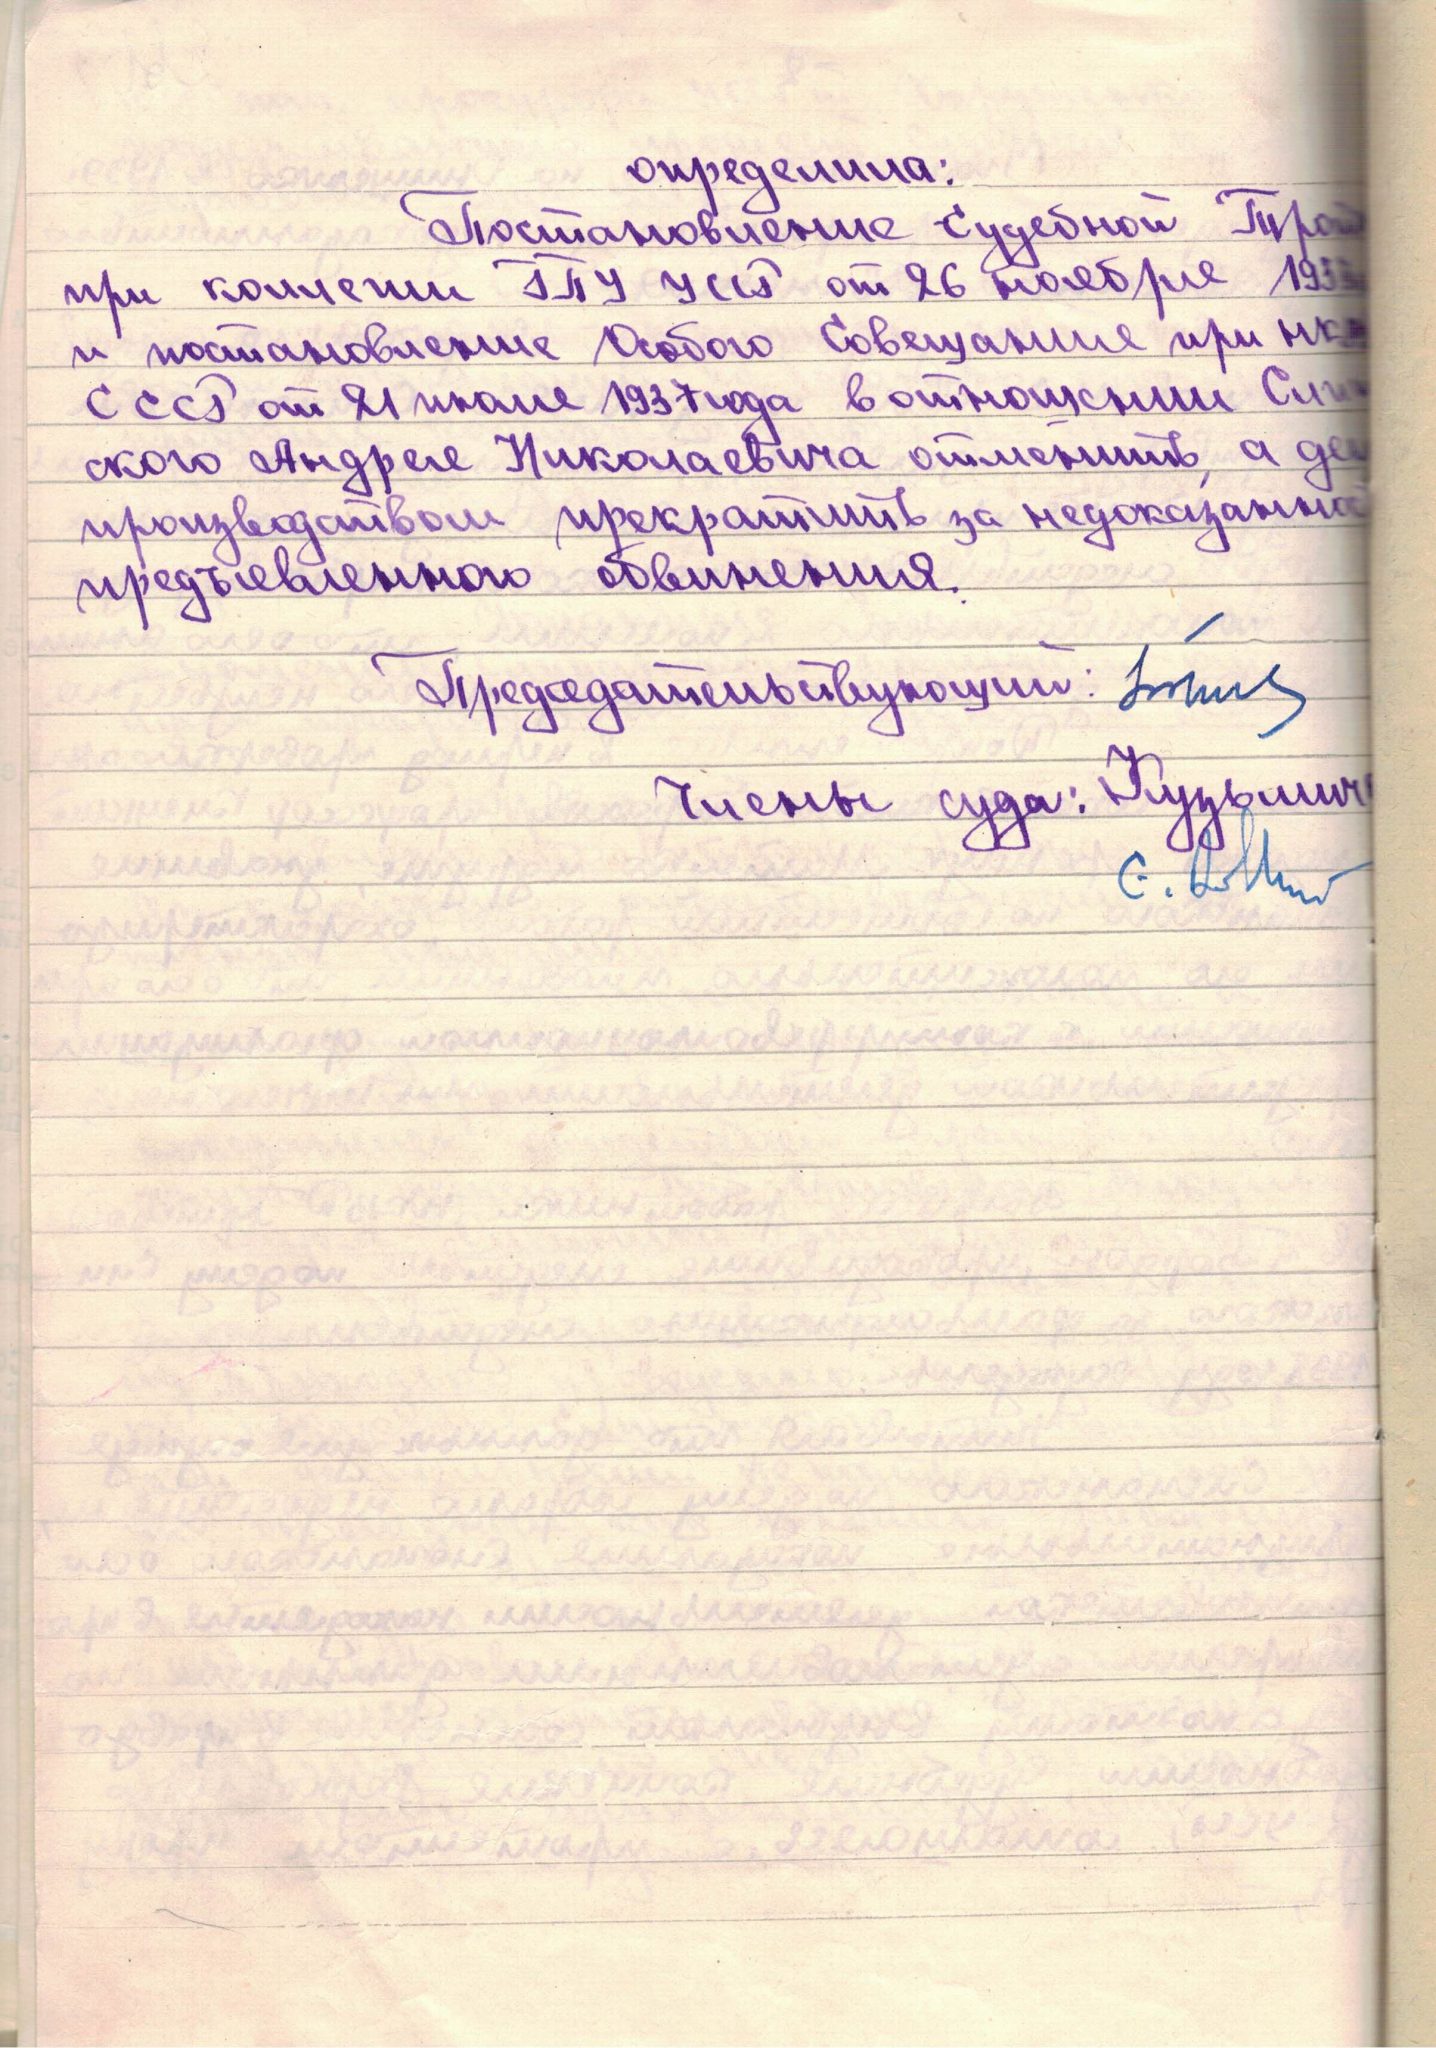 определила:
Постановление Судебной Трой
при коллегии ГПУ УССР от 26 ноября 193
и постановление Особого Совещания при НК
СССР от 21 июля 1937 года в отношении Сли
ского Андрея Николаевича отменить, а дел
производством прекратить за недоказанност
предъявленного обвинения.
Председательствующий:
Члены суда: Кузьмиче